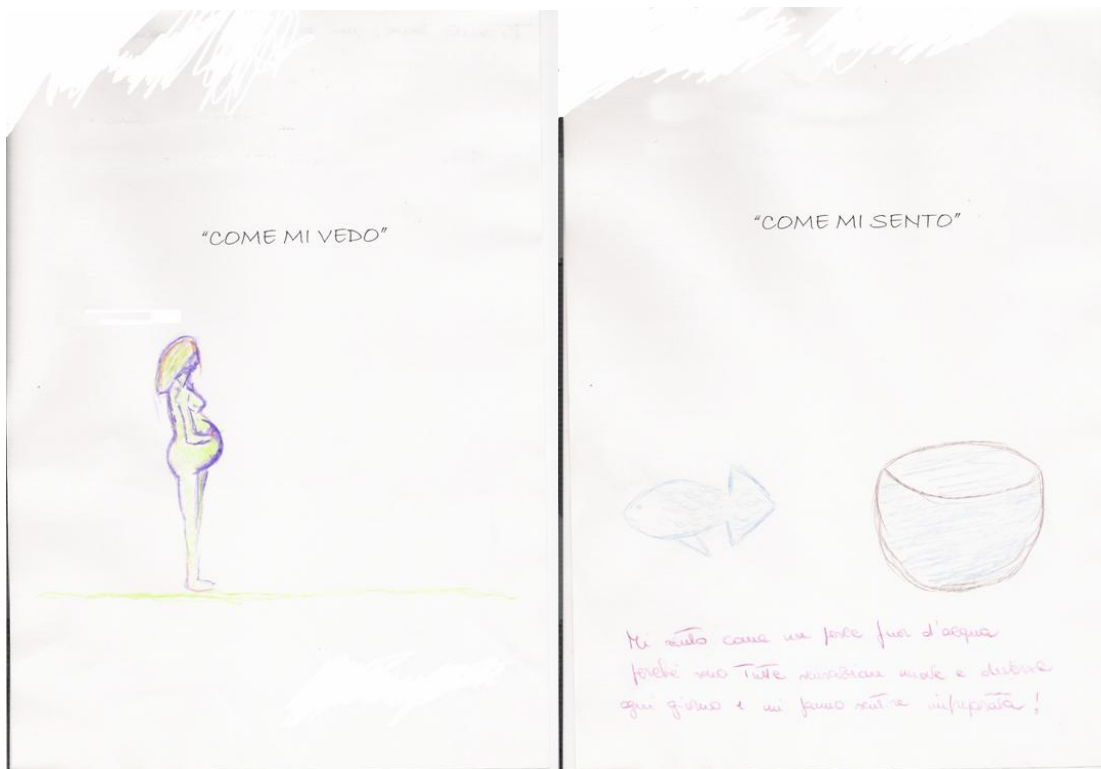 "COME MI VEDO"
"COME MI SENTO"
Mi sento come un pesce fuor d'acqua
perché sono Tutte sensazioni nuove e diverse
ogni giorno e mi fanno sentire impreparata!